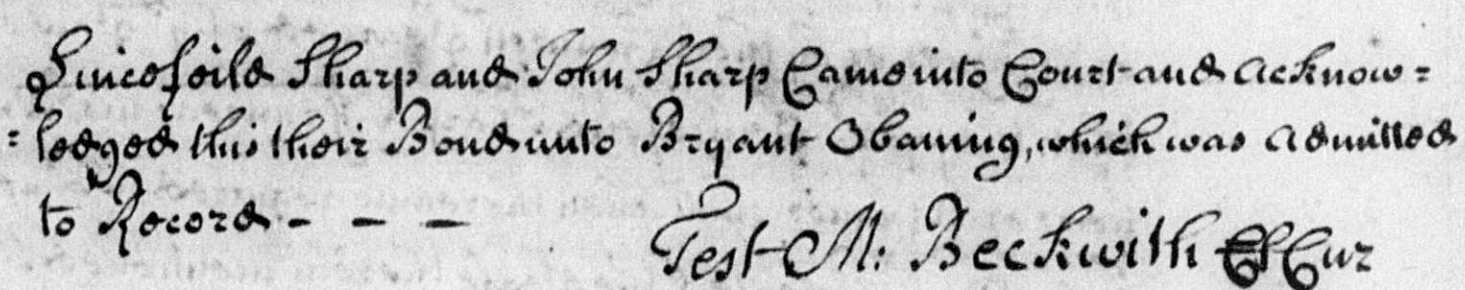 Lincefeild Sharp and John Sharp Came into Court and Acknow=
=ledged this their Bond unto Bryant Obaning, which was Admitted
to Record - - -
Test M: Beckwith Cl Cur